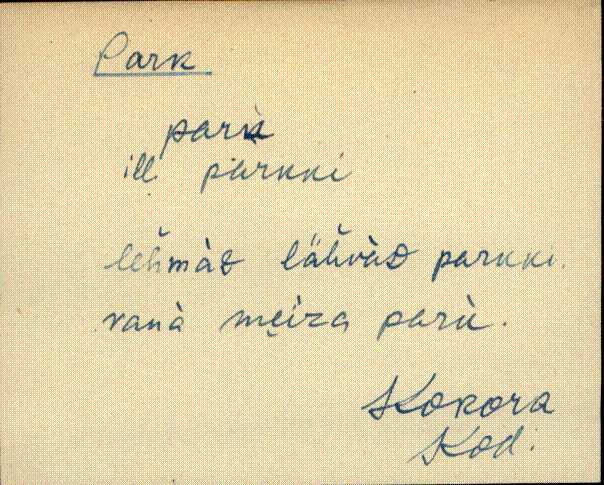 Park
park
ill. parkki
lehmàd lähvàd parkki.
vanà mẹiza park.
Kokora
Kod.